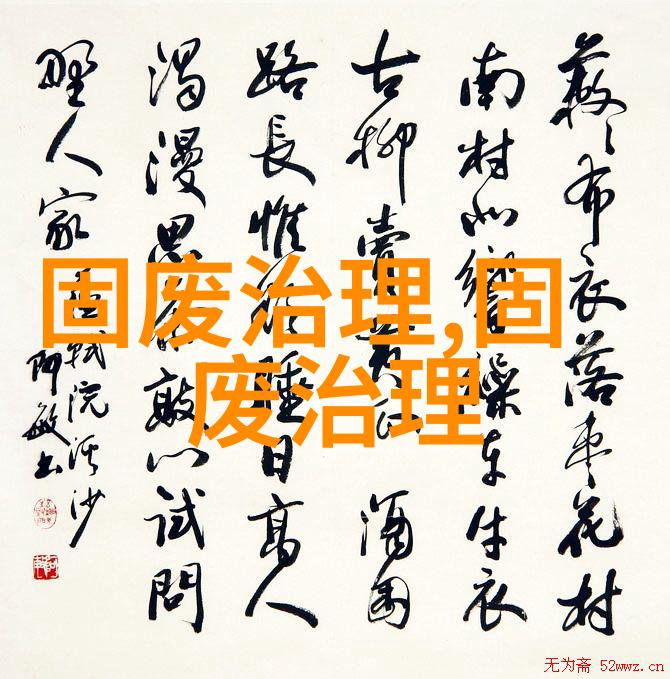 蔌々布衣落枣花村
南村北響缫车牛衣
古柳賣黄瓜 酒困
路長惟欲睡日高人
渴漫思茶敲门试問
野人家 苏轼浣溪沙
阿敏书
固废治理,固
废治理
无为斋 52wwz.cn